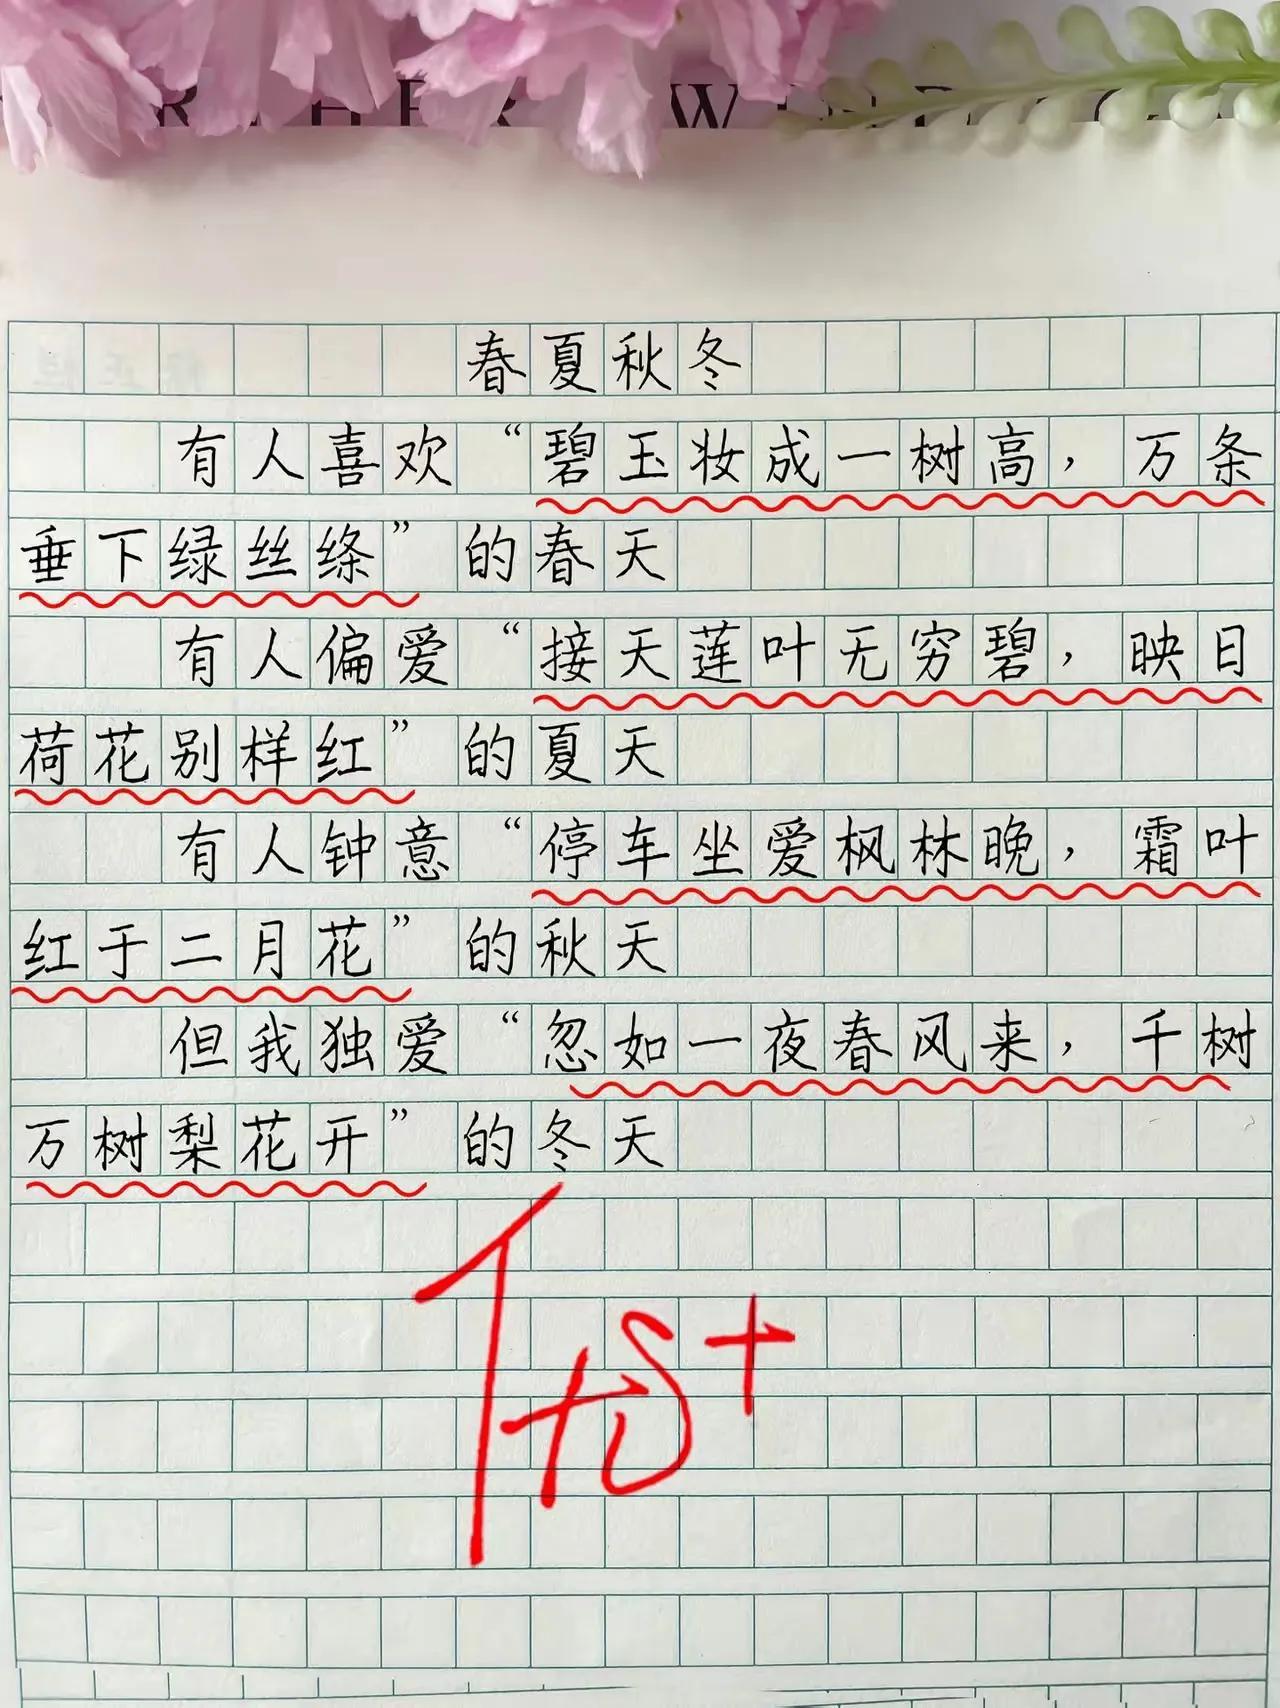 春夏秋冬
有人喜欢“碧玉妆成一树高，万条
垂下绿丝绦”的春天
有人偏爱“接天莲叶无穷碧，映日
荷花别样红”的夏天
有人钟意“停车坐爱枫林晚，霜叶
红于二月花”的秋天
但我独爱“忽如一夜春风来，千树
万树梨花开”的冬天